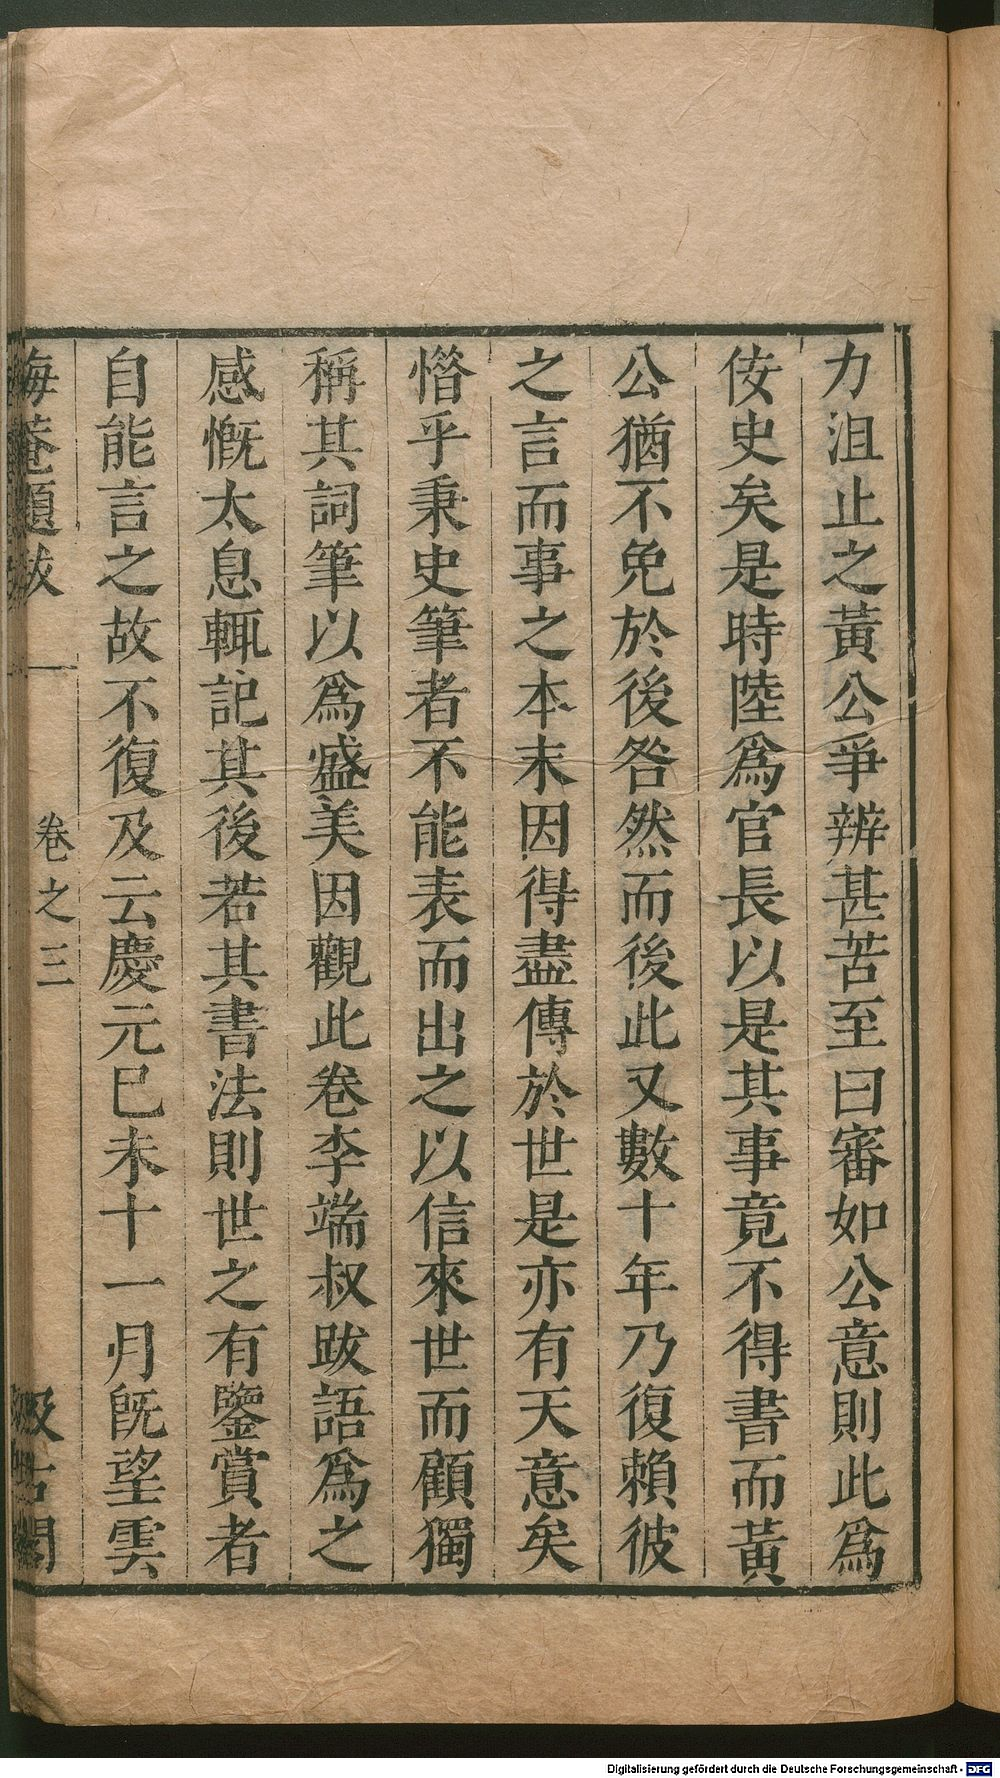 力沮止之黃公爭辨甚苦至曰審如公意則此爲
佞史矣是時陸爲官長以是其事竟不得書而黃
公猶不免於後咎然而後此又數十年乃復賴彼
之言而事之本末因得盡傳於世是亦有天意矣
惜乎秉史筆者不能表而出之以信來世而顧獨
稱其詞筆以爲盛美因觀此卷李端叔跋語爲之
感慨太息輒記其後若其書法則世之有鑒賞者
自能言之故不復及云慶元巳未十一月旣望雲
晦菴題跋 卷之三 汲古閣
Digitalisierung gefördert durch die Deutsche Forschungsgemeinschaft - DFG